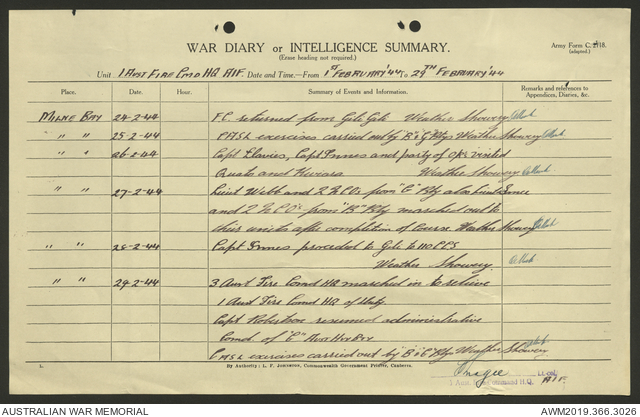 WAR DIARY or INTELLIGENCE SUMMARY.
(Erase heading not required.)
Army Form C. 2118.
(adapted.)
Unit 1 Aust Fire Cmd HQ AIF. Date and Time.—From 1st February '44 To 29th February '44
Place. Date. Hour. Summary of Events and Information. Remarks and references to Appendices, Diaries, &c.
Milne Bay 24-2-44 F.C. returned from Gili Gili Weather Showery
" " 25-2-44 exercises carried out by "B" & "C" Btys Weather Showery
" " 26-2-44 Capt Capt Innes and party of visited
and Weather Showery
" " 27-2-44 Lieut Webb and 2 NCOs from "C" Bty also Lieut
and 2 NCO's from Bty marched out to
their units after completion of Course. Weather Showery
" " 28-2-44 Capt Innes proceeded to Gili to 110 CCS
Weather Showery.
" " 29-2-44 3 Aust Fire Comd HQ marched in to relieve
1 Aust Fire Comd HQ of duty
Capt Robertson resumed administrative
Comd of "C" Aust Hvy Bty
exercises carried out by "B" & "C" Bty Weather Showery
Lt. Col.
3 Aust. Fire Command H.Q. AIF.
1.
By Authority: L. F. Johnston, Commonwealth Government Printer, Canberra.
AUSTRALIAN WAR MEMORIAL
AWM2019.366.3026